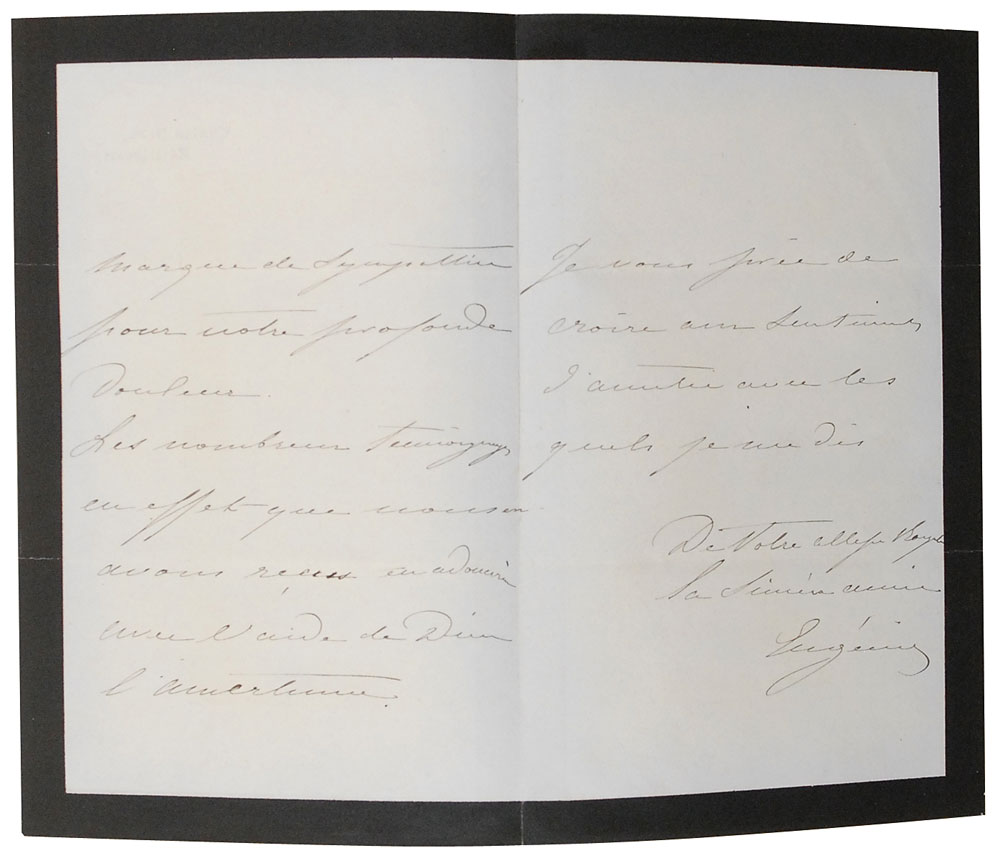 marque de Sympathie
pour notre profonde
Douleur.
Les nombreux temoignages
en effet que nous en
avons reçus en adoucira
avec l'aide de Dieu
l'amertume.
Je vous prie de
croire aux Sentiments
d'amitie avec les
quels je me dis
De Votre Altesse Royale
la Sincère amie
Eugénie